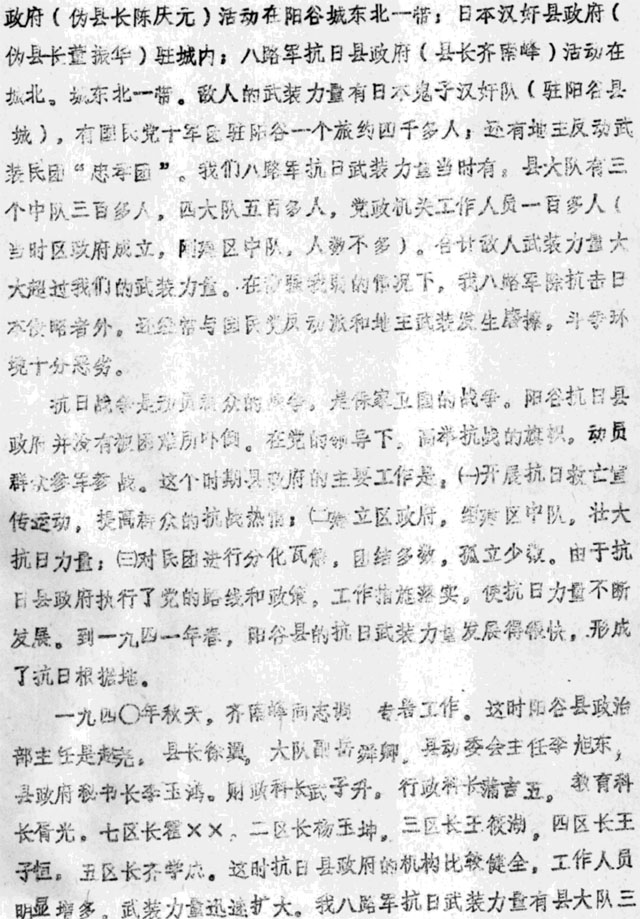 政府（伪县长陈庆元）活动在阳谷城东北一带；日本汉奸县政府（
伪县长董振华）驻城内；八路军抗日县政府（县长齐南峰）活动在
城北。城东北一带。敌人的武装力量有日本鬼子汉奸队（驻阳谷县
城），有国民党十军团驻阳谷一个旅约四千多人；还有地主反动武
装民团“忠孝团”。我们八路军抗日武装力量当时有。县大队有三
个中队三百多人，四大队五百多人，党政机关工作人员一百多人（
当时区政府成立，刚建区中队，人数不多）。合计敌人武装力量大
大超过我们的武装力量。在敌强我弱的情况下，我八路军除抗击日
本侵略者外。还经常与国民党反动派和地主武装发生磨擦，斗争环
境十分恶劣。
抗日战争是动员群众的战争，是保家卫国的战争。阳谷抗日县
政府并没有被困难所吓倒。在党的领导下，高举抗战的旗帜，动员
群众参军参战。这个时期县政府的主要工作是：㈠开展抗日救亡宣
传运动，提高群众的抗战热情；㈡建立区政府，组建区中队，壮大
抗日力量；㈢对民团进行分化瓦解，团结多数，孤立少数。由于抗
日县政府执行了党的路线和政策，工作措施落实，使抗日力量不断
发展。到一九四一年春，阳谷县的抗日武装力量发展得很快，形成
了抗日根据地。
一九四〇年秋天，齐南峰同志调 专署工作。这时阳谷县政治
部主任是赵亮，县长徐翼，大队副岳舜卿，县动委会主任李旭东，
县政府秘书长李玉鸿。财政科长武子升。行政科长蒲吉五，教育科
长胥光。七区长翟××，二区长杨玉坤，三区长王筱湖，四区长王
子恒，五区长齐学。这时抗日县政府的机构比较健全，工作人员
明显增多，武装力量迅速扩大。我八路军抗日武装力量有县大队三